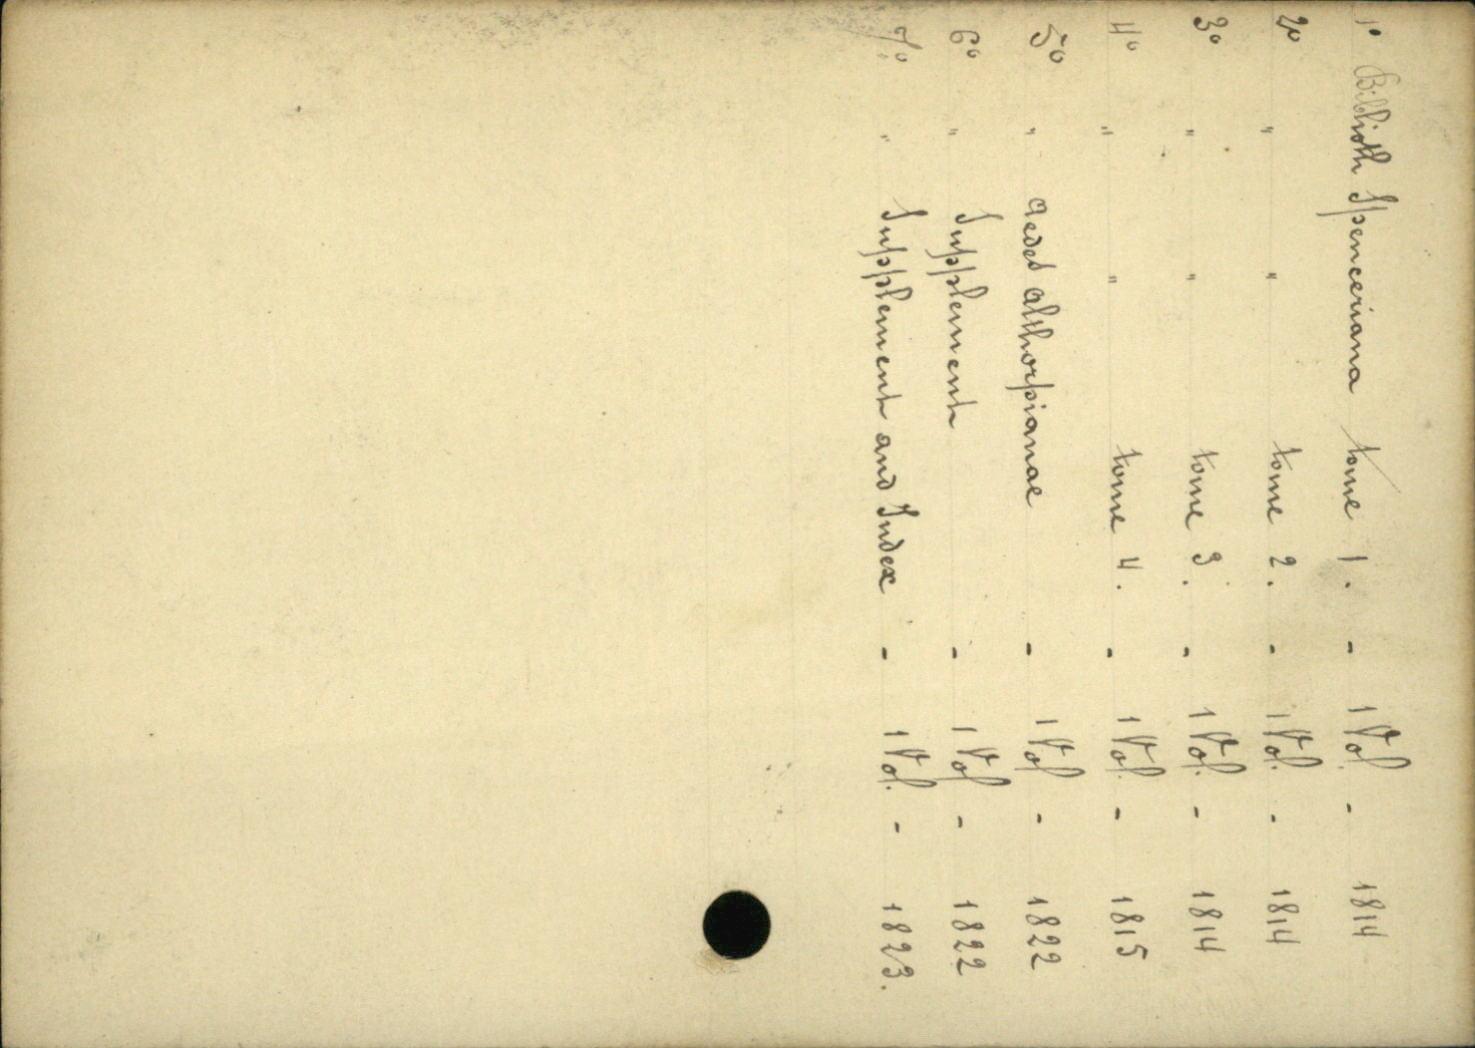 1° Biblioth Spenceriana tome 1. - 1 Vol. - 1814
2° " " tome 2. - 1 Vol. - 1814
3° " " tome 3. - 1 Vol. - 1814
4° " " tome 4. - 1 Vol. - 1815
5° " Aedes Althorpianae - 1 Vol - 1822
6° " Supplement - 1 Vol - 1822
7° " Supplement and Index - 1 Vol. - 1823.